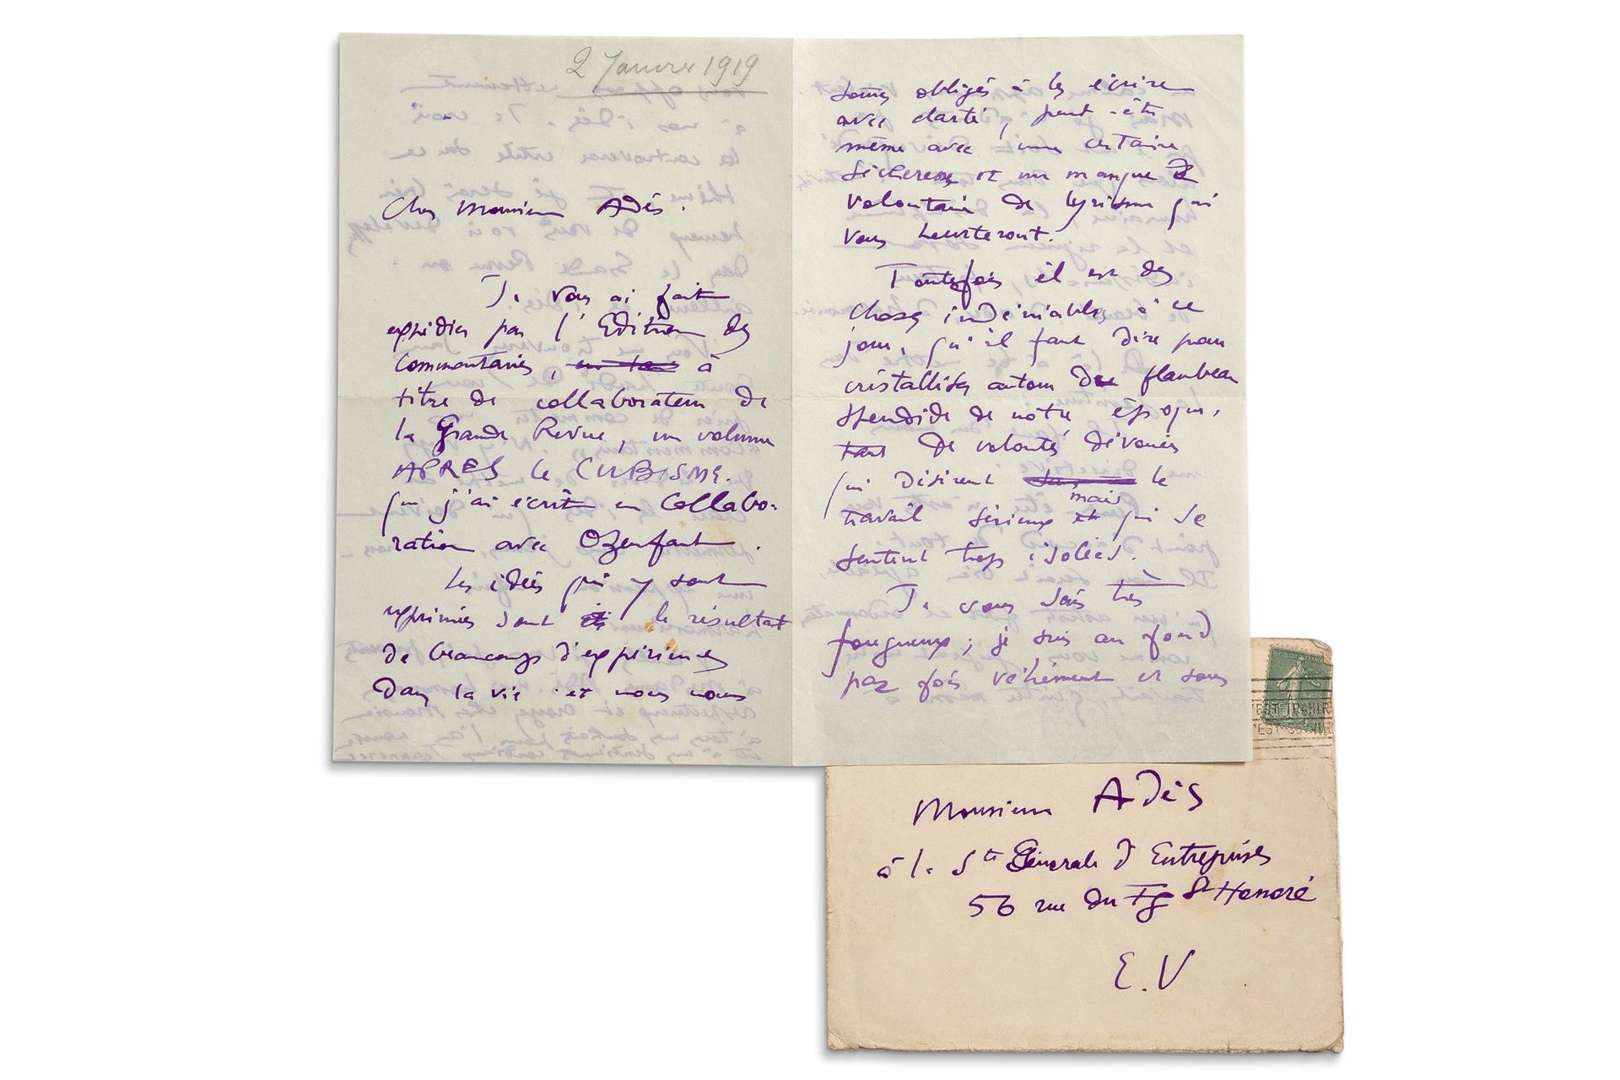 2 Janvier 1919
Cher Monsieur Adès.
Je vous ai fait
expédier par l'Edition des
Commentaires, à
titre de collaborateur de
la Grande Revue, un volume
APRES le CUBISME.
que j'ai écrit en Collabo-
ration avec Ozenfant.
Les idées qui y sont
exprimées sont le résultat
de beaucoup d'expériences
dans la vie et nous nous
sommes obligés à les écrire
avec clarté, peut-être
même avec une certaine
sécheresse et un manque
volontaire de lyrisme qui
vous heurteront.
Toutefois il est des
choses indéniables à ce
jour, qu'il faut dire pour
cristalliser autour du flambeau
splendide de notre époque,
tant de volontés dévouées
qui désirent le
travail sérieux mais qui se
sentent trop isolées.
Je vous sais très
fougueux; je suis au fond
parfois véhément et sous
Monsieur Adès
à la Sté Générale d'Entreprises
56 rue du Fg St Honoré
E.V